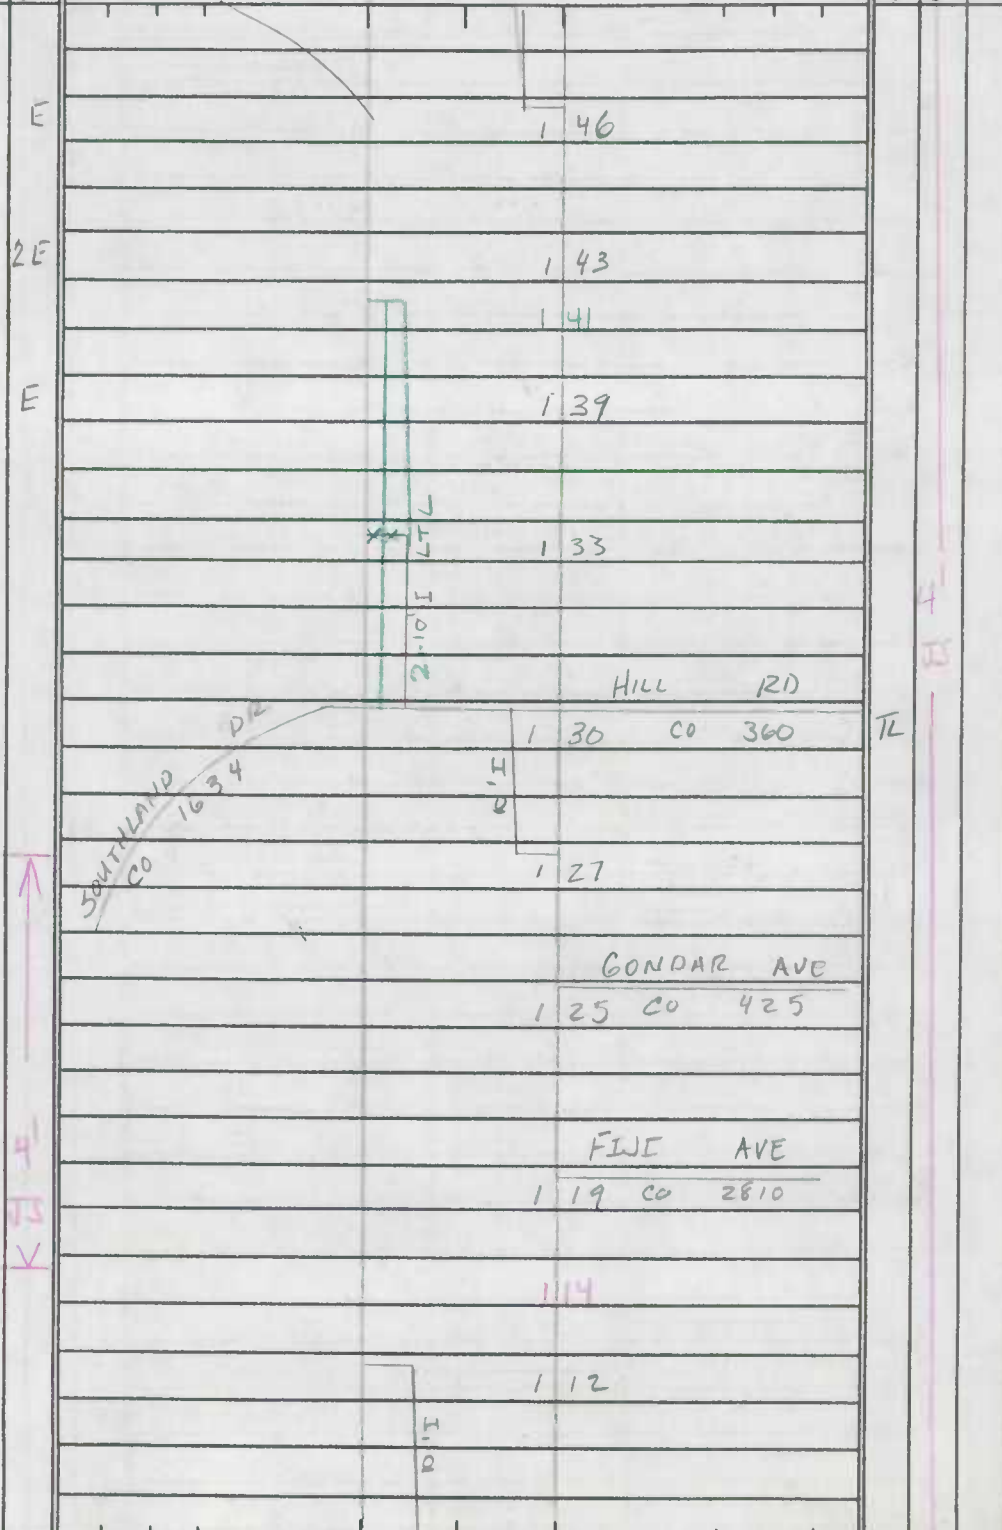 E
1 46
2E
1 43
1 41
E
1 39
LTL
1 33
2-10' I
4'
JS
HILL RD
1 30 CO 360
TL
SOUTHLAND DR
CO 1634
1 27
GONDAR AVE
1 25 CO 425
FIJI AVE
1 19 CO 2810
4'
JS
1 14
1 12